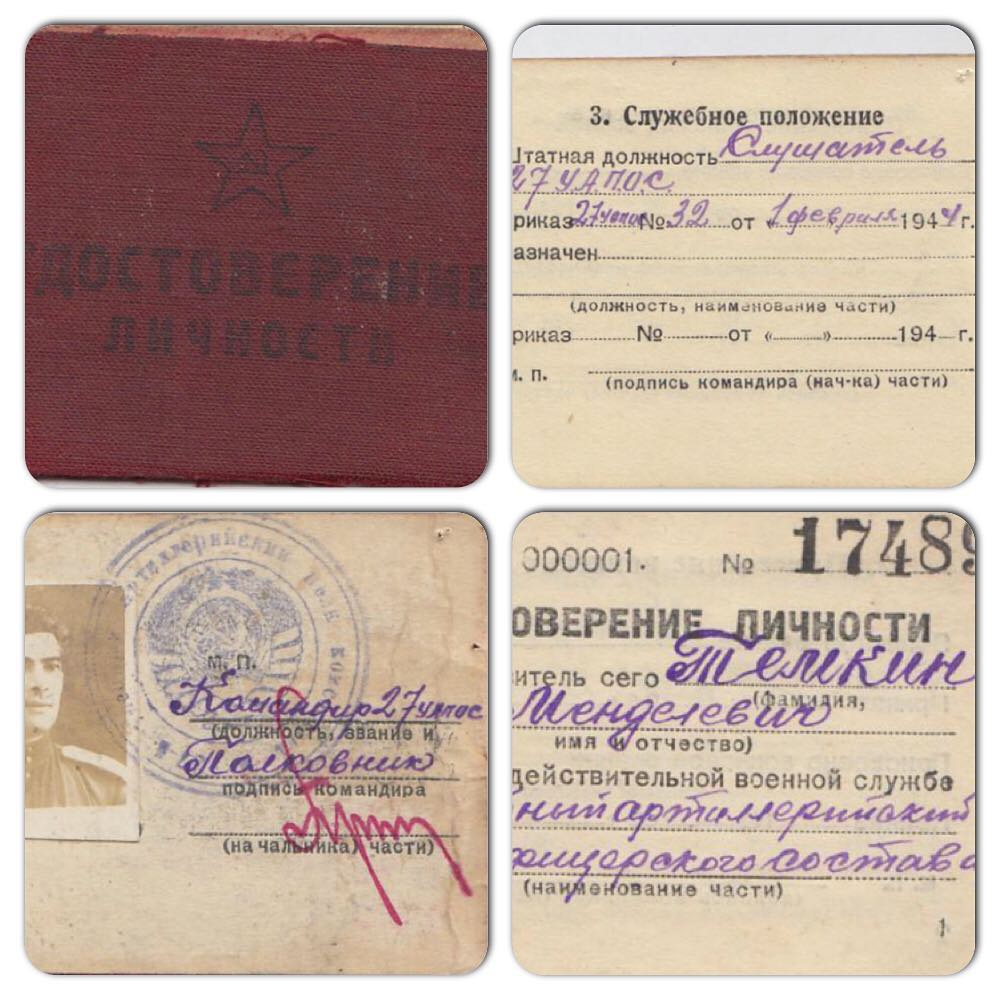 УДОСТОВЕРЕНИЕ
ЛИЧНОСТИ
3. Служебное положение
Штатная должность Слушатель
27 УАПОС
риказ 27 уапос № 32 от „1 февраля 1944 г.
азначен
(должность, наименование части)
риказ № от « » 194 г.
м. п.
(подпись командира (нач-ка) части)
Артиллерийский полк
М. П.
Командир 27 уапос
(должность, звание и
Полковник
подпись командира
(начальника) части)
000001. № 17489
ОВЕРЕНИЕ ЛИЧНОСТИ
итель сего Темкин
(фамилия,
Менделевич
имя и отчество)
действительной военной службе
ный артиллерийский
фицерского состава
(наименование части)
1